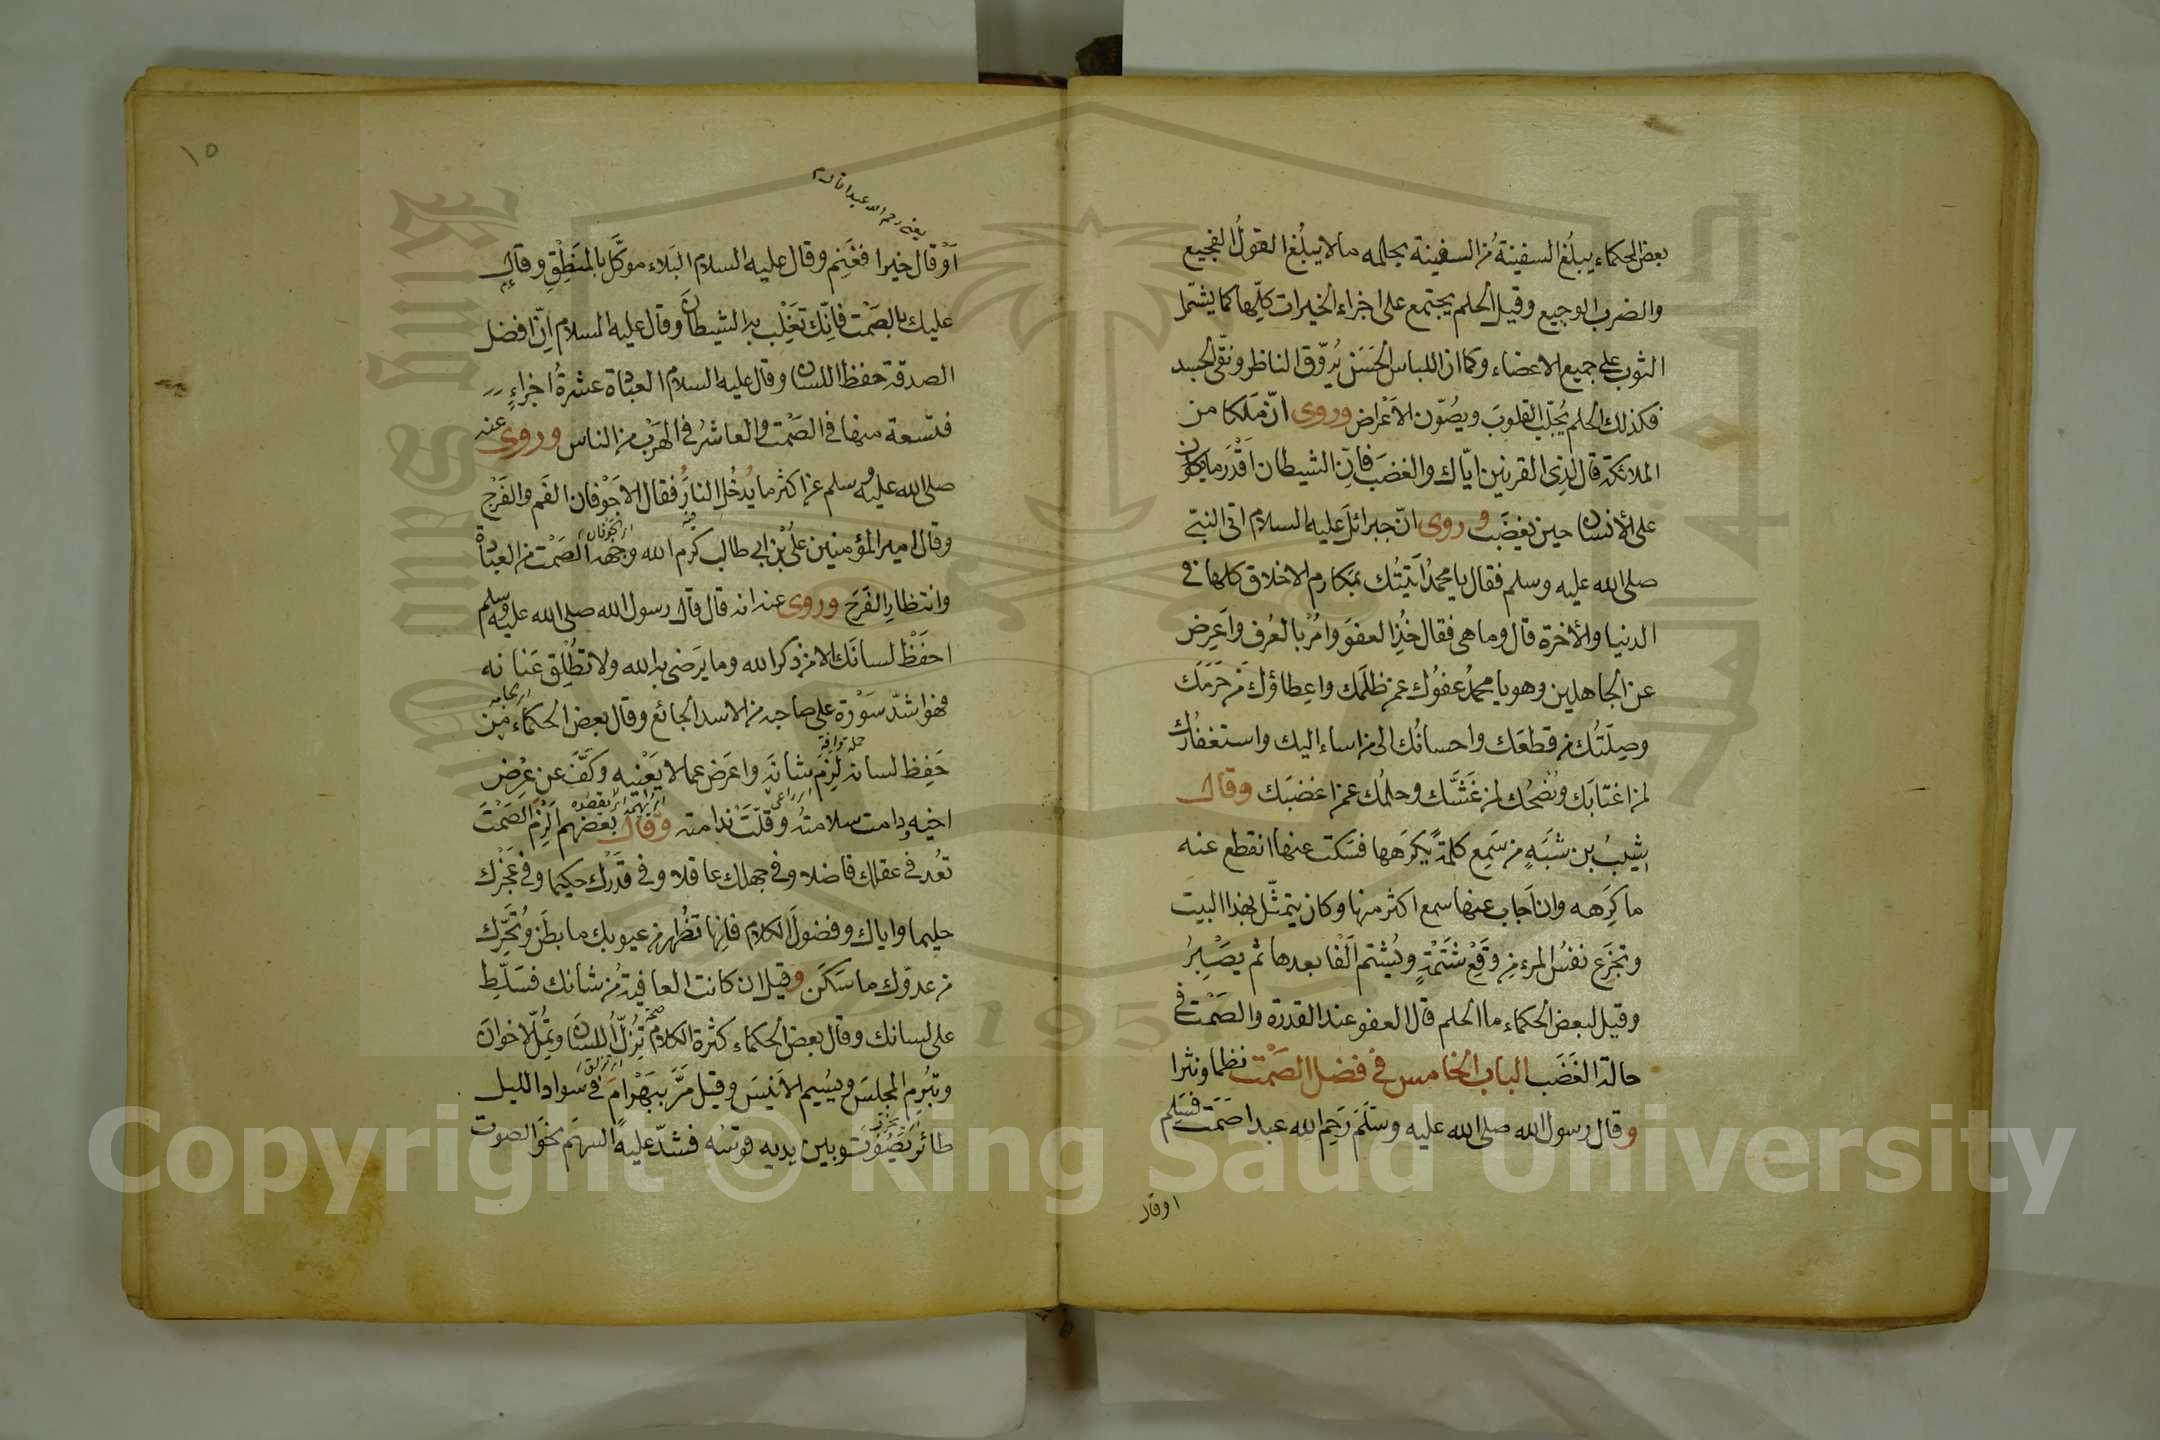 بعض الحكماء يبلُغ السفينةُ من السفينة بحلمه مالا يبلُغ القولُ الفجيع
والضرب الوجيع وقيل الحلم يجتمع على اجزاء الخيرات كلّها كما يشتمل
الثوب على جميع الاعضاء وكما ان اللباس الحَسَن يُروّق الناظر ونقّى الجسد
فكذلك الحلم يُجلّب القلوبَ ويصُوّن الاَعْراض وروى انّ مَلَكا من
الملائكة قال لذى القرنين ايّاك والغضبَ فانّ الشيطان اَقْدَر ما يكون
على الأنسان حين يغضَب وروى انّ جبرائلَ عليه السلام اتى النبىّ
صلى الله عليه وسلم فقال يا محمدُ اَتيتُك بمكارم الاخلاق كلها فى
الدنيا والأخرة قال وما هى فقال خُذِ العفوَ وأمُرْ بالعُرف واَعرِض
عن الجاهلين وهو يا محمدُ عفوُك عمن ظلمَك واِعطاؤك مَن حَرَمَك
وصِلَتُك من قطعَك واحسانُك الى من اساء اليك واستغفارُك
لمن اغتابَك ونُصْحُك لمن غَشَّك وحلمُك عمن اغضبَك وقال
شيبُ بن شَبَهٍ من سَمِع كلمةً يكرَهها فسَكت عنها انقطع عنه
ما كرِهه وان اَجاب عنها سمع اكثر منها وكان يتمثّل بهذا البيت
وتجزَع نفسُ المرء من وَقَعْ شَتْمَةٍ ويُشتم اَلْفا بعدها ثم يصَبِرُ
وقيل لبعض الحكماء ما الحلم قال العفو عند القدرة والصَمْت فى
حالة الغَضَب الباب الخامس فى فضل الصَمْت نظما ونثرا
وقال رسول الله صلى الله عليه وسلّم رَحِم الله عبدا صَمَت فسَلِم
او قال
١٥
يعنى رحم الله عبدا قال
اَوْ قال خيرا فغَنِم وقال عليه السلام البَلاء موكَّل بالمنَطِقِ وقال
عليك بالصَمْت فانّك تَغْلِب به الشيطانَ وقال عليه السلام اِنّ افضل
الصدقة حفظ اللسان وقال عليه السلام العبادة عشرةُ اجزاءٍ
فتسعة منها فى الصَمْت والعاشرُ فى الهَرْب من الناس وروى عنه
صلى الله عليه وسلم عن اكثر ما يُدخُل النارَ فقال الاَجْوفان الفَم والفَرْج
وقال امير المؤمنين علىُّ بن ابى طالب كرم الله وجهه الصَمْت من العبادة
وانتظار الفَرَج وروى عنه انه قال قال رسول الله صلى الله عليه وسلم
احفَظْ لسانَك الا من ذكر الله وما يَرضى به الله ولا تُطْلِق عَنانه
فهو اشدّ سَوْرة على صاحبه من الاسد الجائع وقال بعض الحكماء مَن
حَفِظ لسانه لزِم شانَه واَعرَض عما لا يَعْنيه وكَفَّ عن عِرْض
اخيه ودامت سلامتُه وقلّتْ ندامته وقال بعضهم اَلْزِم الصَمْتَ
تُعدّ فى عقلك فاضلا وفى جهلك عاقلا وفى قَدْرك حكيما وفى عَجْزك
حليما واياك وفضولَ الكلام فانها تُظهر من عيوبك ما بطَن وتُحَرِّك
من عدوّك ما سَكَن وقيل ان كانت العافية من شانك فسَلِّط
على لسانك وقال بعض الحكماء كثرة الكلام تُزِلّ اللسان وتُمِلّ الاخوان
وتبُرِم المجلسَ وتُسْئِيم الاَنيسَ وقيل مَرَّ ببَهْرامَ فى سواد الليل
طائرُ يُصَوِّتُ وبين يديه قوسُه فشدّ عليه السهَم نحوَ الصوت